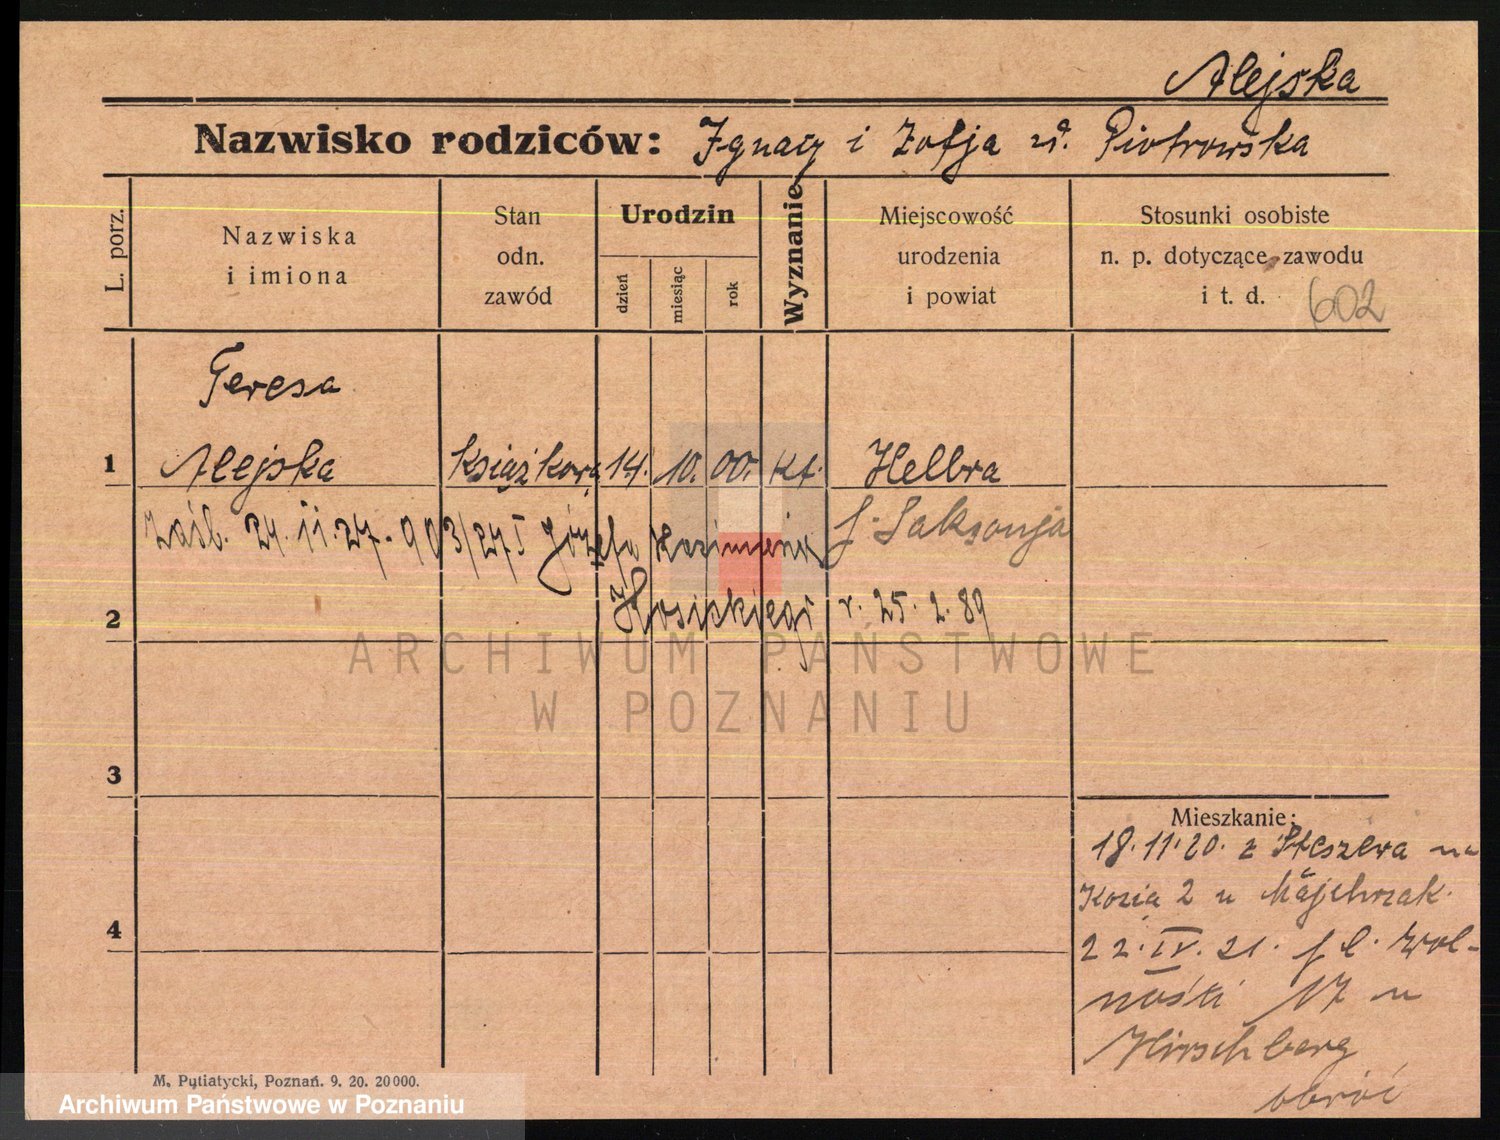 Alejska
Nazwisko rodziców: Ignacy i Zofja z d. Piotrowska
L. porz.
Nazwiska
i imiona
Stan
odn.
zawód
Urodzin
dzień
miesiąc
rok
Wyznanie
Miejscowość
urodzenia
i powiat
Stosunki osobiste
n. p. dotyczące zawodu
i t. d.
602
Teresa
1 Alejska książkowa 14. 10. 00. kt. Helbra
zaśl. 24.11.27. 903/27 I Józefa Kazimierza Saksonja
2 r. 25.2.89
ARCHIWUM PAŃSTWOWE
W POZNANIU
3
Mieszkanie:
18.11.20. z Stęszewa na
Kozia 2 u Majchrzak
4
22.IV.21. pl. Wol-
ności 17 u
Hirschberg
obróć
M. Putiatycki, Poznań. 9. 20. 20000.
Archiwum Państwowe w Poznaniu